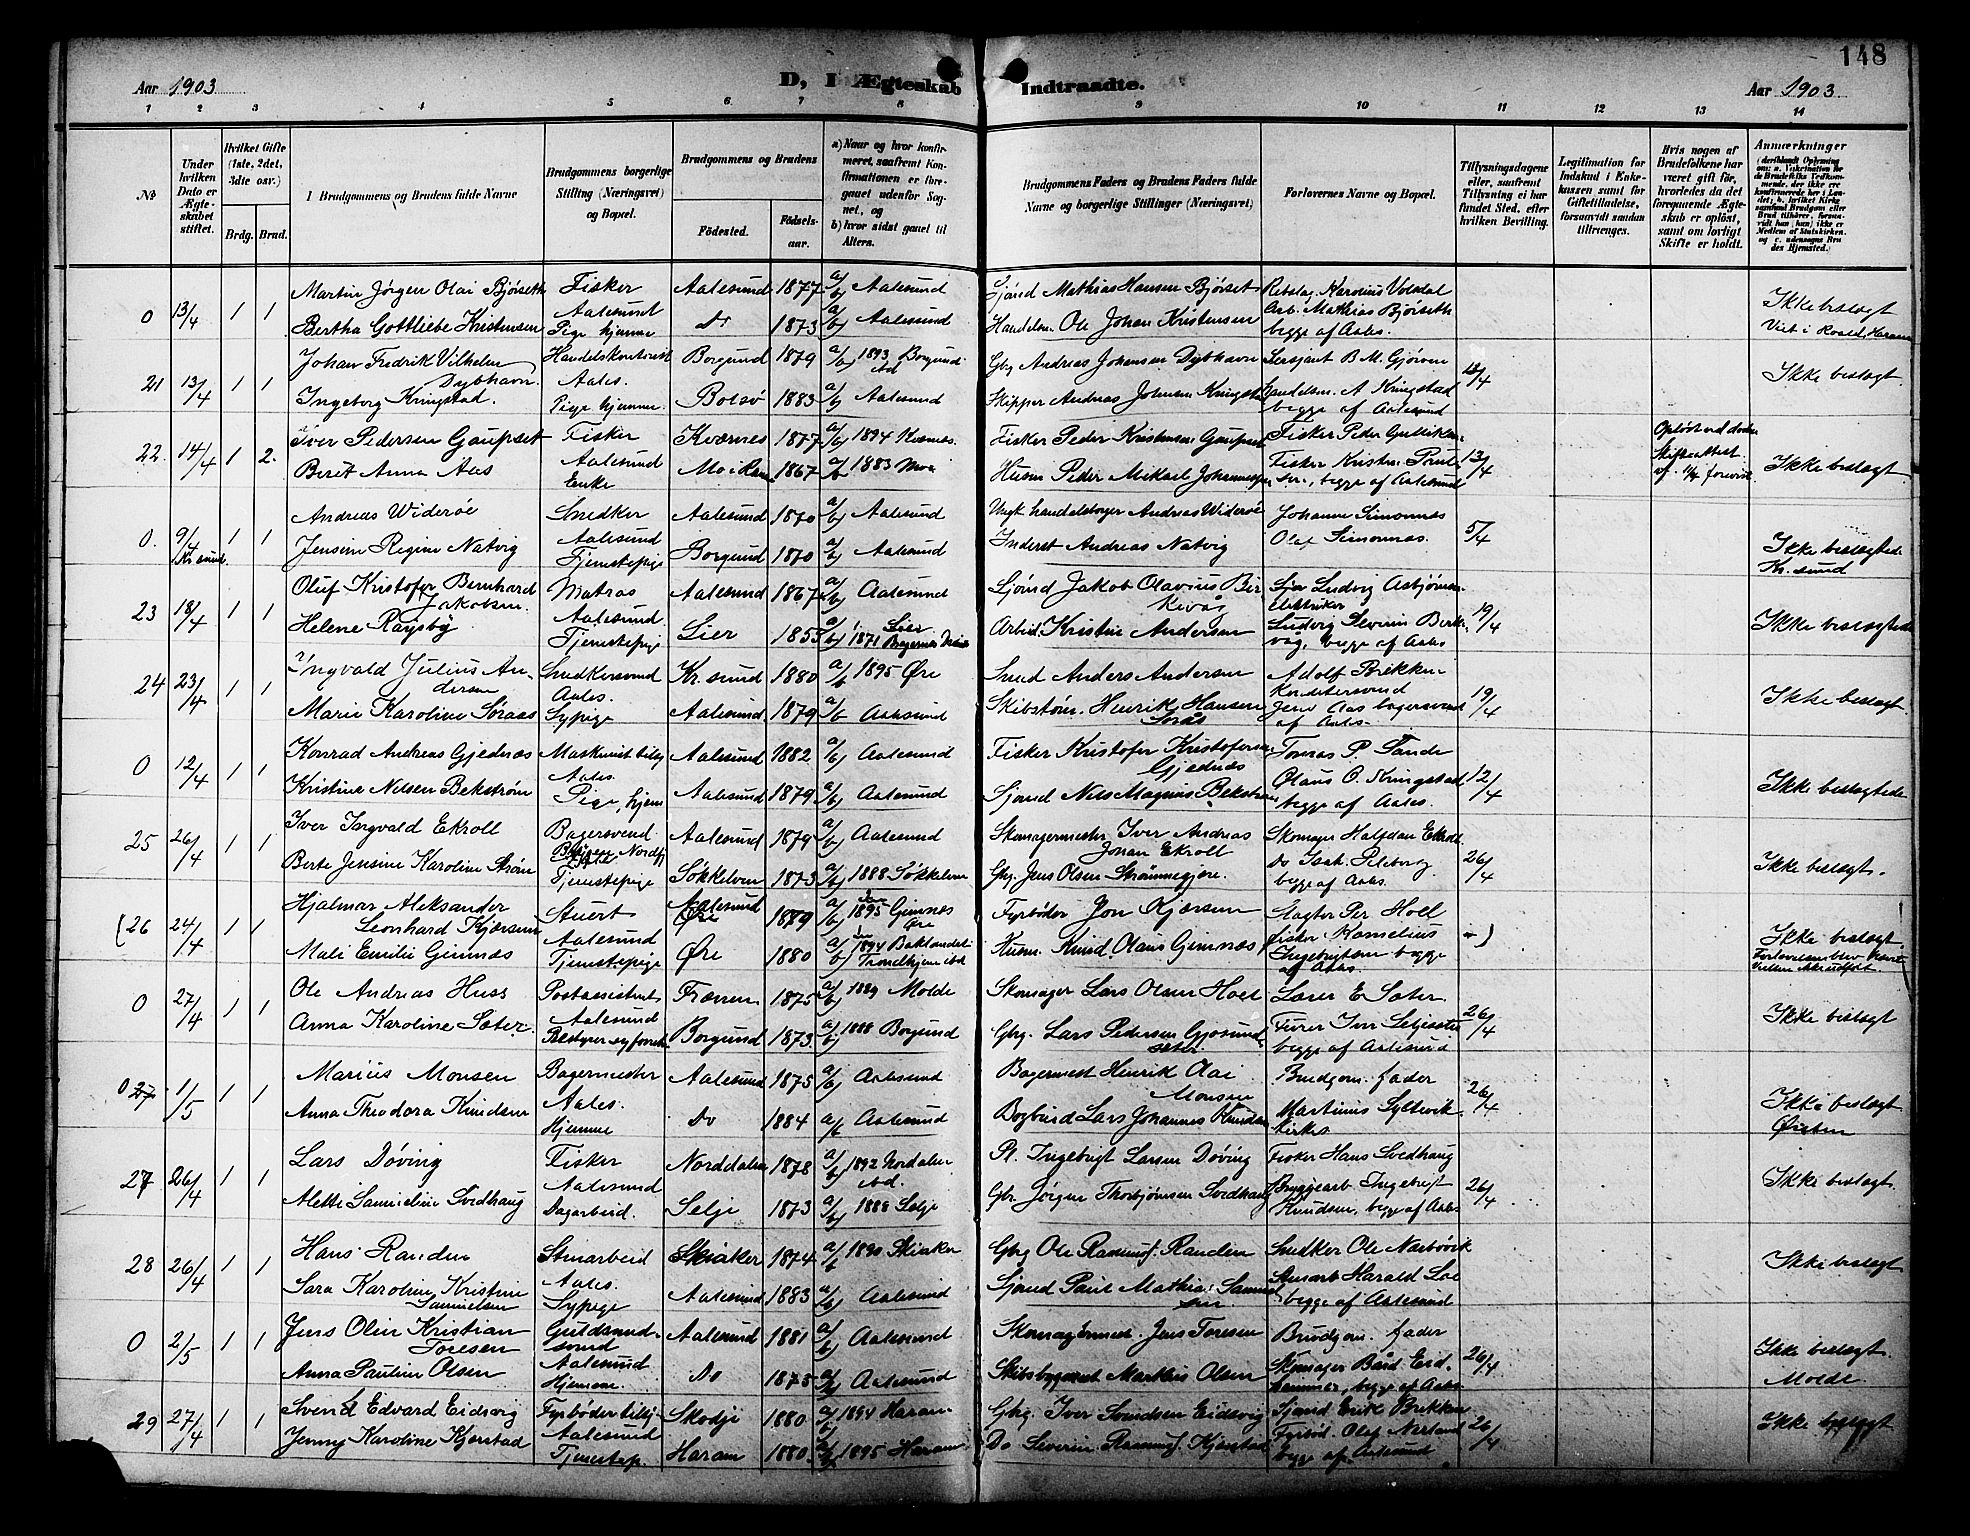 148
Aar 1903
D, I Ægteskab Indtraadte.
Aar 1903
1 2 3 4 5 6 7 8 9 10 11 12 13 14
№
Under hvilken Dato er Ægteskabet stiftet.
Hvilket Gifte (1ste, 2det, 3die osv.)
Brdg. Brud.
Brudgommens og Brudens fulde Navne
Brudgommens borgerlige Stilling (Næringsvei) og Bopæl.
Brudgommens og Brudens
Fødested. Fødselsaar.
a) Naar og hvor konfirmeret, saafremt Konfirmationen er foregaaet udenfor Sognet, og
b) hvor sidst gaaet til Alters.
Brudgommens Faders og Brudens Faders fulde Navne og borgerlige Stillinger (Næringsvei)
Forlovernes Navne og Bopæl.
Tillysningsdagene eller, saafremt Tillysning ei har fundet Sted, efter hvilken Bevilling.
Legitimation for Indskud i Enkekassen samt for Giftetilladelse, forsaavidt saadan tiltrænges.
Hvis nogen af Brudefolkene har været gift før, hvorledes da det foregaaende Ægteskab er opløst, samt om lovligt Skifte er holdt.
Anmærkninger
Martin Jørgen Olai Bjørseth Fisker Aalesund 1877 a/b Aalesund Sjömd Mathias Hansen Bjørset Rebslag. Karolius Volsdal
0 13/4 1 1 Aalesund Arb. Mathias Bjørseth Ikke beslægt
Bertha Gottliebe Kristensen Pige hjemme Do 1873 a/b Aalesund Handelsm. Ole Johan Kristensen begge af Aales. Viet i Roald, Haram
Johan Fredrik Vilhelm Handelskontorist Borgund 1879 a/b 1893 Borgund ibd Gbg Andreas Johansen Dybhavn Sersjant B. M. Gjörven
21 13/4 1 1 Dybhavn. Aales. 13/4 Ikke beslægt.
Ingeborg Kringstad. Pige hjemme. Bolsø 1883 a/b Aalesund Skipper Andreas Johansen Kringstad Handelsm. A Kringstad begge af Aalesund
Iver Pedersen Gaupset Fisker Kværnes 1877 a/b 1894 Kværnes. Fisker Peder Kristensen Gaupset Fisker Peder Gulliksen Opløst ved döden
22. 14/4 1 2. Aalesund Fisker Kristen 13/4 Skifteattest Ikke beslægt
Beret Anna Aas Enke Mo i Ran 1867 a/b 1883 Moe Husm Peder Mikael Johannessen begge af Aalesund af 11/4 forevist.
Andreas Widerøe Snedker Aalesund 1870 a/b Aalesund handelsborger Andreas Widerøe Johanne Simonnæs
0. 9/4 Kr.sund 1 1 Aalesund 5/4
Jensine Regine Natvig Tjenestepige Borgund 1870 a/b Aalesund Inderst Andreas Natvig Olaf Simonnæs. Ikke beslægtede Kr. sund
Oluf Kristofer Bernhard Jakobsen Matros Aalesund 1867 a/b Aalesund Sjömd Jakob Olavius Bir Kevåg Ludvig Asbjörnsen elektriker
23 18/4 1 1 Aalesund 19/4 Ikke beslægtede
Helene Røysby Tjenestepige Lier 1853 a/b 1871 Lier Arbeid. Kristen Andersen Ludvig Severin Berkevåg, begge af Aales
Ingvald Julius Andersen Snedkersvend Kr. sund 1880 a/b 1895 Øre Smed Anders Andersen Adolf Brekken
24 23/4 1 1 Aales. Konditorsvend 19/4 Ikke beslægt.
Marie Karoline Søraas Sypige Aalesund 1879 a/b Aalesund Skibstöm. Henrik Hansen Sorås Jens Aas bagersvend af Aales.
Konrad Andreas Gjednæs Maskinist tilsj Aalesund 1882 a/b Aalesund Fisker Kristofer Kristofersen Gjednæs Tomas P. Sande
0 12/4 1 1 Aales. Olaus O. Kringstad 12/4 Ikke beslægtede
Kristine Nilsen Bekström Pige, hjem Aalesund 1879 a/b Aalesund Sjömd Nils Magnus Bekström begge af Aales.
Iver Ingvald Ekroll Bagersvend Aalesund 1879 a/b Aalesund Skomagermester Iver Andreas Johan Ekroll Skomager Halfdan Ekroll
25 26/4 1 1 Nordfj. 26/4 Ikke beslægt.
Berte Jensine Karoline Strøm Tjenestepige Søkkelven 1873 a/b 1888 Søkkelven Gbg. Jens Olsen Strømmegjære. begge af Aales.
Hjalmar Aleksander Leonhard Kjærsem Stuert Aalesund 1879 a/b 1895 Gimnæs Øre Fyrbøder Jon Kjærsem Slagter Per Holl
(26 24/4 1 1 Aalesund Fisker Kornelius — ) Ikke beslægt.
Mali Emilie Gimnæs Tjenestepige Øre 1880 a/b 1894 Baklandet Trondhjem ibd Husm. Knud Olaus Gimnæs Ingebrigtsen begge af Aales. Forlovelsen blev hævet
Ole Andreas Huss Postassistent Frænen 1875 a/b 1889 Molde Skomager Lars Olsen Hoel Lærer E Sæter
0 27/4 1 1 Aalesund 26/4 Ikke beslægt
Anna Karoline Sæter. Bestyrer syforretn Borgund 1873 a/b 1888 Borgund Gbg. Lars Pedersen Gjosund sæter Furer Iver begge af Aalesund
Marius Monsen Bagermester Aalesund 1875 a/b Aalesund Bagermest Henrik Olai Monsen Brudgom. fader
0 27 1/5 1 1 Aales. 26/4 Ikke beslægt
Anna Theodora Knudsen Hjemme Do 1884 a/b Aalesund Bogbind Lars Johannes Knudsen Martinus Syltevik Øisten
Lars Døving Fisker Norddalen 1878 a/b 1892 Nordalen ibd. Pl. Ingebrigt Larsen Døving Fisker Hans Svedhaug
27 26/4 1 1 Aalesund Bryggearb Ingebrigt 26/4 Ikke beslægt.
Alette Samueline Svedhaug Dagarbeid. Selje 1873 a/b 1888 Selje Gbr. Jörgen Thorbjörnsen Svedhaug Knudsen, begge af Aales
Hans Randen Stenarbeid Skiaker 1874 a/b 1890 Skiaker Gbg Ole Rasmusf. Randen Snedker Ole Nærbövik
28 26/4 1 1 Aales. Ikke beslægt
Sara Karoline Kristine Samuelsen Sypige Aalesund 1883 a/b Aalesund Sjömd Paul Mathias Samuelsen Stenarb Harald Loe begge af Aalesund
Jens Olin Kristian Toresen Guldsmedsvend Aalesund 1881 a/b Aalesund Skomagermest. Jens Toresen Brudgom. fader
0 2/5 1 1 Aalesund 26/4 Ikke beslægt.
Anna Pauline Olsen Hjemme. Do 1878 a/b Aalesund Skibsbygmest Markus Olsen Skomager Bård Eidhammer, begge af Aales Molde.
Svend Edvard Eidsvig Fyrbøder tilsj. Skodje 1880 a/b 1894 Haram Gbg. Iver Svendsen Eidsvig Sjömd Erik Brekken
29 27/4 1 1 Aalesund Fyrbød. Olaf Nerland 26/4 Ikke beslægt
Jenny Karoline Kjerstad Tjenestep. Haram 1880 a/b 1895 Haram Do Severin Rasmusf. Kjerstad begge af Aalesund